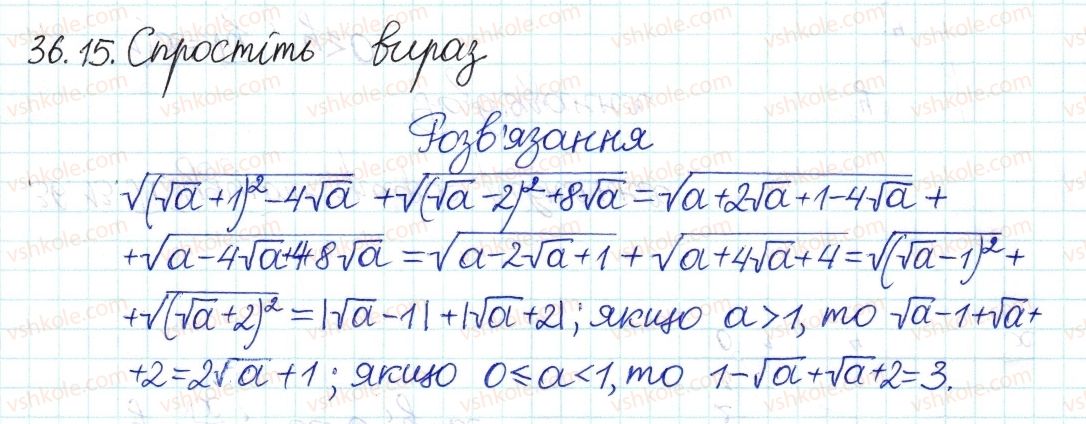 36.15. Спростіть вираз
Розв'язання
√((√a+1)²-4√a) + √((√a-2)²+8√a) = √(a+2√a+1-4√a) +
+√(a-4√a+4+8√a) = √(a-2√a+1) + √(a+4√a+4) = √((√a-1)²) +
+√((√a+2)²) = |√a-1| + |√a+2|; якщо a>1, то √a-1+√a+
+2=2√a+1; якщо 0≤a<1, то 1-√a+√a+2=3.